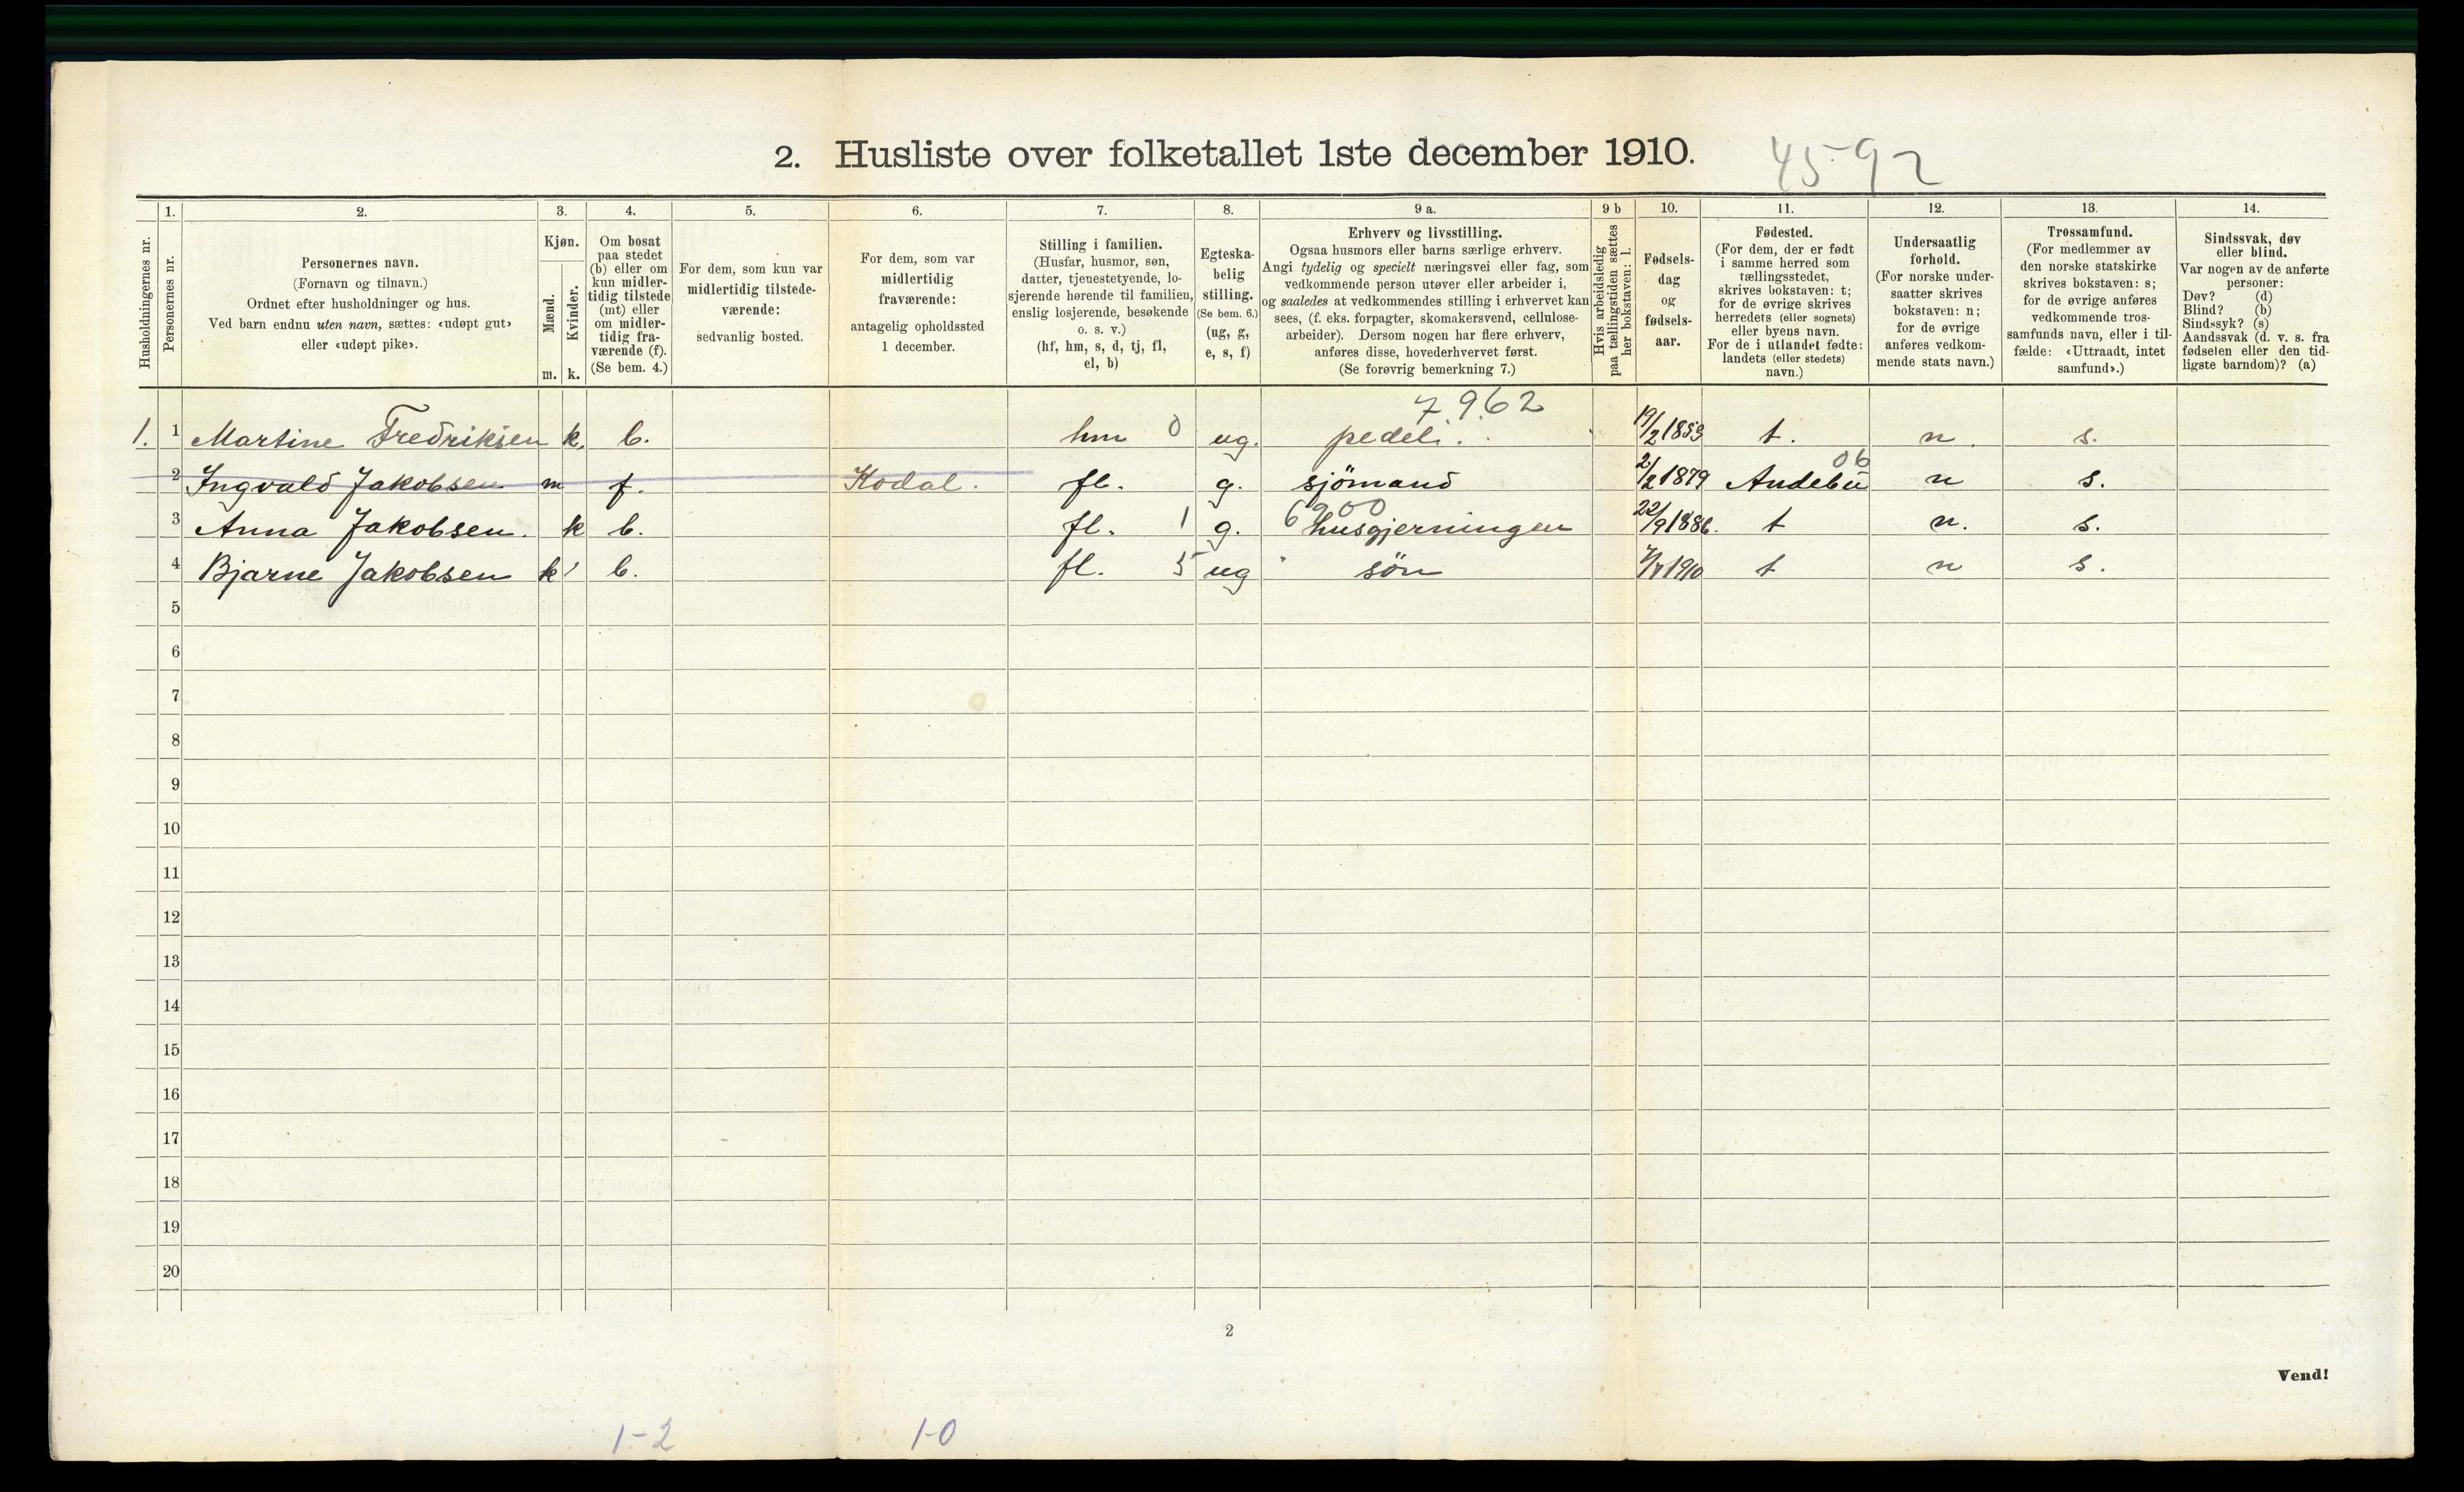 2. Husliste over folketallet 1ste december 1910. 45-92
Husholdningernes nr.
1. Personernes nr.
2. Personernes navn. (Fornavn og tilnavn.) Ordnet efter husholdninger og hus. Ved barn endnu uten navn, sættes: «udøpt gut» eller «udøpt pike».
3. Kjøn. Mænd. m. Kvinder. k.
4. Om bosat paa stedet (b) eller om kun midlertidig tilstede (mt) eller om midlertidig fraværende (f). (Se bem. 4.)
5. For dem, som kun var midlertidig tilstedeværende: sedvanlig bosted.
6. For dem, som var midlertidig fraværende: antagelig opholdssted 1 december.
7. Stilling i familien. (Husfar, husmor, søn, datter, tjenestetyende, losjerende hørende til familien, enslig losjerende, besøkende o. s. v.) (hf, hm, s, d, tj, fl, el, b)
8. Egteskabelig stilling. (Se bem. 6.) (ug, g, e, s, f)
9 a. Erhverv og livsstilling. Ogsaa husmors eller barns særlige erhverv. Angi tydelig og specielt næringsvei eller fag, som vedkommende person utøver eller arbeider i, og saaledes at vedkommendes stilling i erhvervet kan sees, (f. eks. forpagter, skomakersvend, cellulosearbeider). Dersom nogen har flere erhverv, anføres disse, hovederhvervet først. (Se forøvrig bemerkning 7.)
9 b Hvis arbeidsledig paa tællingstiden sættes her bokstaven: l.
10. Fødselsdag og fødselsaar.
11. Fødested. (For dem, der er født i samme herred som tællingsstedet, skrives bokstaven: t; for de øvrige skrives herredets (eller sognets) eller byens navn. For de i utlandet fødte: landets (eller stedets) navn.)
12. Undersaatlig forhold. (For norske undersaatter skrives bokstaven: n; for de øvrige anføres vedkommende stats navn.)
13. Trossamfund. (For medlemmer av den norske statskirke skrives bokstaven: s; for de øvrige anføres vedkommende trossamfunds navn, eller i tilfælde: «Uttraadt, intet samfund».)
14. Sindssvak, døv eller blind. Var nogen av de anførte personer: Døv? (d) Blind? (b) Sindssyk? (s) Aandssvak (d. v. s. fra fødselen eller den tidligste barndom)? (a)
7962
1. 1 Martine Fredriksen k. b. hm 0 ug. pedeli. 19/2 1853 t. n. s.
06
2 Ingvald Jakobsen m f. Kodal. fl. g. sjömand 2/2 1879 Andebu n s.
6900
3 Anna Jakobsen. k b. fl. 1 g. husgjerningen 22/9 1886. t n. s.
4 Bjarne Jakobsen k b. fl. 5 ug sön 1910 t n s.
5
6
7
8
9
10
11
12
13
14
15
16
17
18
19
20
2
Vend!
1-2 1-0